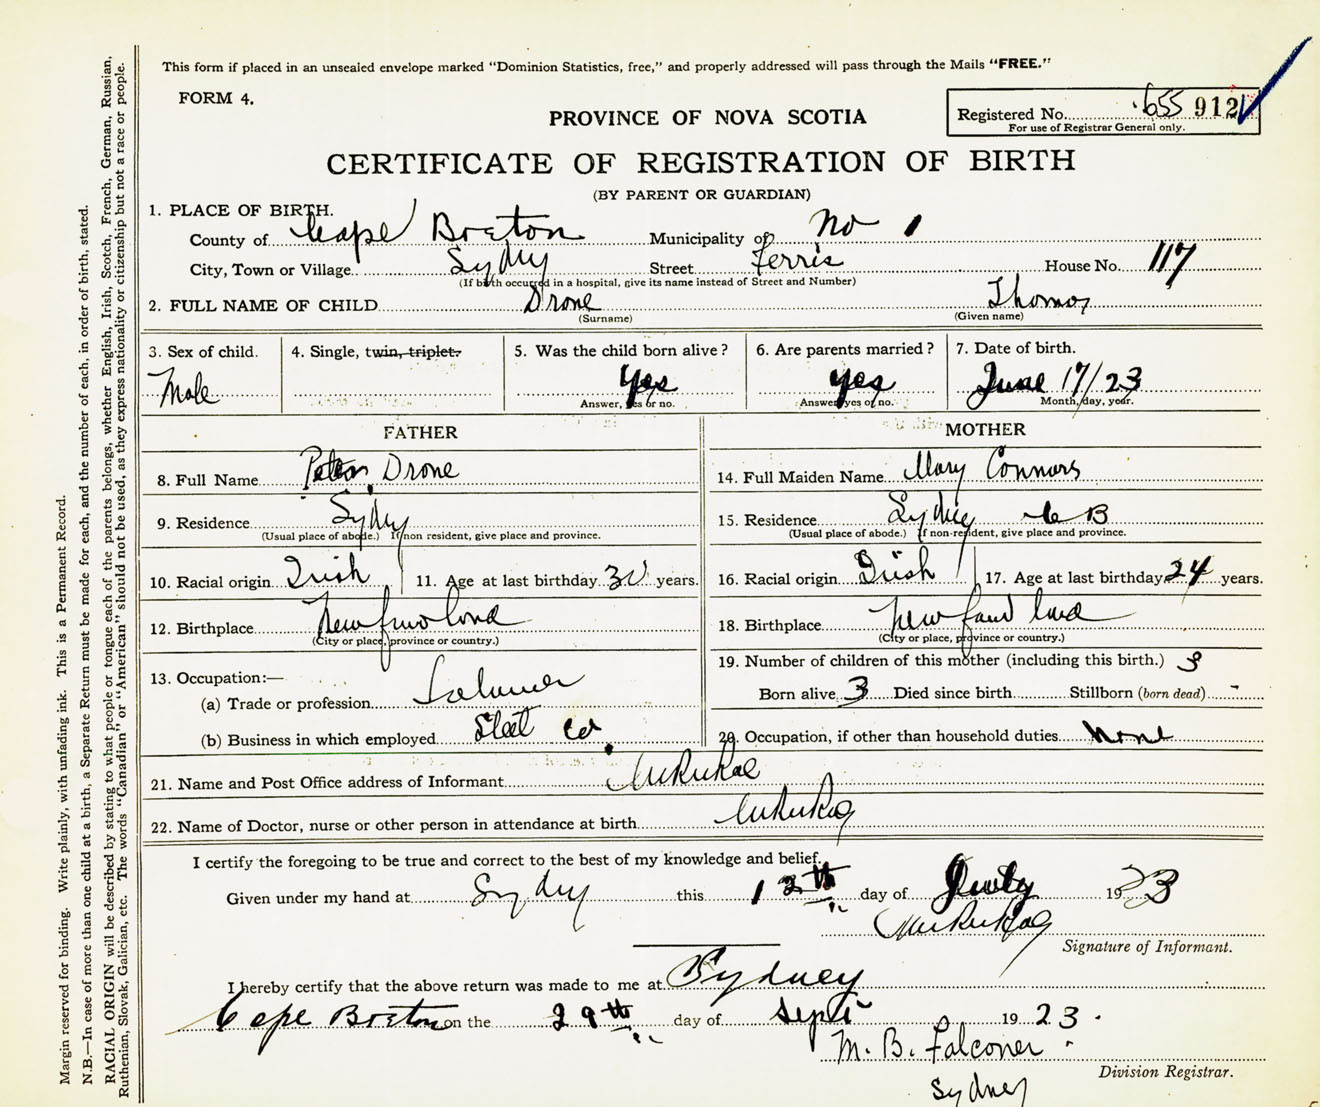 This form if placed in an unsealed envelope marked "Dominion Statistics, free," and properly addressed will pass through the Mails "FREE."
FORM 4.
PROVINCE OF NOVA SCOTIA
Registered No. 655 912
For use of Registrar General only.
CERTIFICATE OF REGISTRATION OF BIRTH
(BY PARENT OR GUARDIAN)
1. PLACE OF BIRTH.
County of Cape Breton Municipality of No 1
City, Town or Village Sydney Street Ferris House No. 117
(If birth occurred in a hospital, give its name instead of Street and Number)
2. FULL NAME OF CHILD Drone Thomas
(Surname) (Given name)
3. Sex of child. 4. Single, twin, triplet. 5. Was the child born alive? 6. Are parents married? 7. Date of birth.
Male Yes Yes June 17/23
Answer, yes or no. Answer yes or no. Month, day, year.
FATHER MOTHER
8. Full Name Peter Drone 14. Full Maiden Name Mary Connors
9. Residence Sydney 15. Residence Sydney C B
(Usual place of abode.) If non resident, give place and province. (Usual place of abode.) If non-resident, give place and province.
10. Racial origin Irish 11. Age at last birthday years. 16. Racial origin Irish 17. Age at last birthday 24 years.
12. Birthplace Newfoundland 18. Birthplace Newfoundland
(City or place, province or country.) (City or place, province or country.)
13. Occupation:— 19. Number of children of this mother (including this birth.) 3
(a) Trade or profession Labourer Born alive 3 Died since birth Stillborn (born dead) -
(b) Business in which employed Steel Co. 20. Occupation, if other than household duties None
21. Name and Post Office address of Informant
22. Name of Doctor, nurse or other person in attendance at birth
I certify the foregoing to be true and correct to the best of my knowledge and belief.
Given under my hand at Sydney this 12th day of July 1923
Signature of Informant.
I hereby certify that the above return was made to me at Sydney
Cape Breton on the 29th day of Sept 1923.
M. B. Falconer
Division Registrar.
Sydney
Margin reserved for binding. Write plainly, with unfading ink. This is a Permanent Record.
N.B.—In case of more than one child at a birth, a Separate Return must be made for each, and the number of each, in order of birth, stated.
RACIAL ORIGIN will be described by stating to what people or tongue each of the parents belongs, whether English, Irish, Scotch, French, German, Russian,
Ruthenian, Slovak, Galician, etc. The words "Canadian" or "American" should not be used, as they express nationality or citizenship but not a race or people.